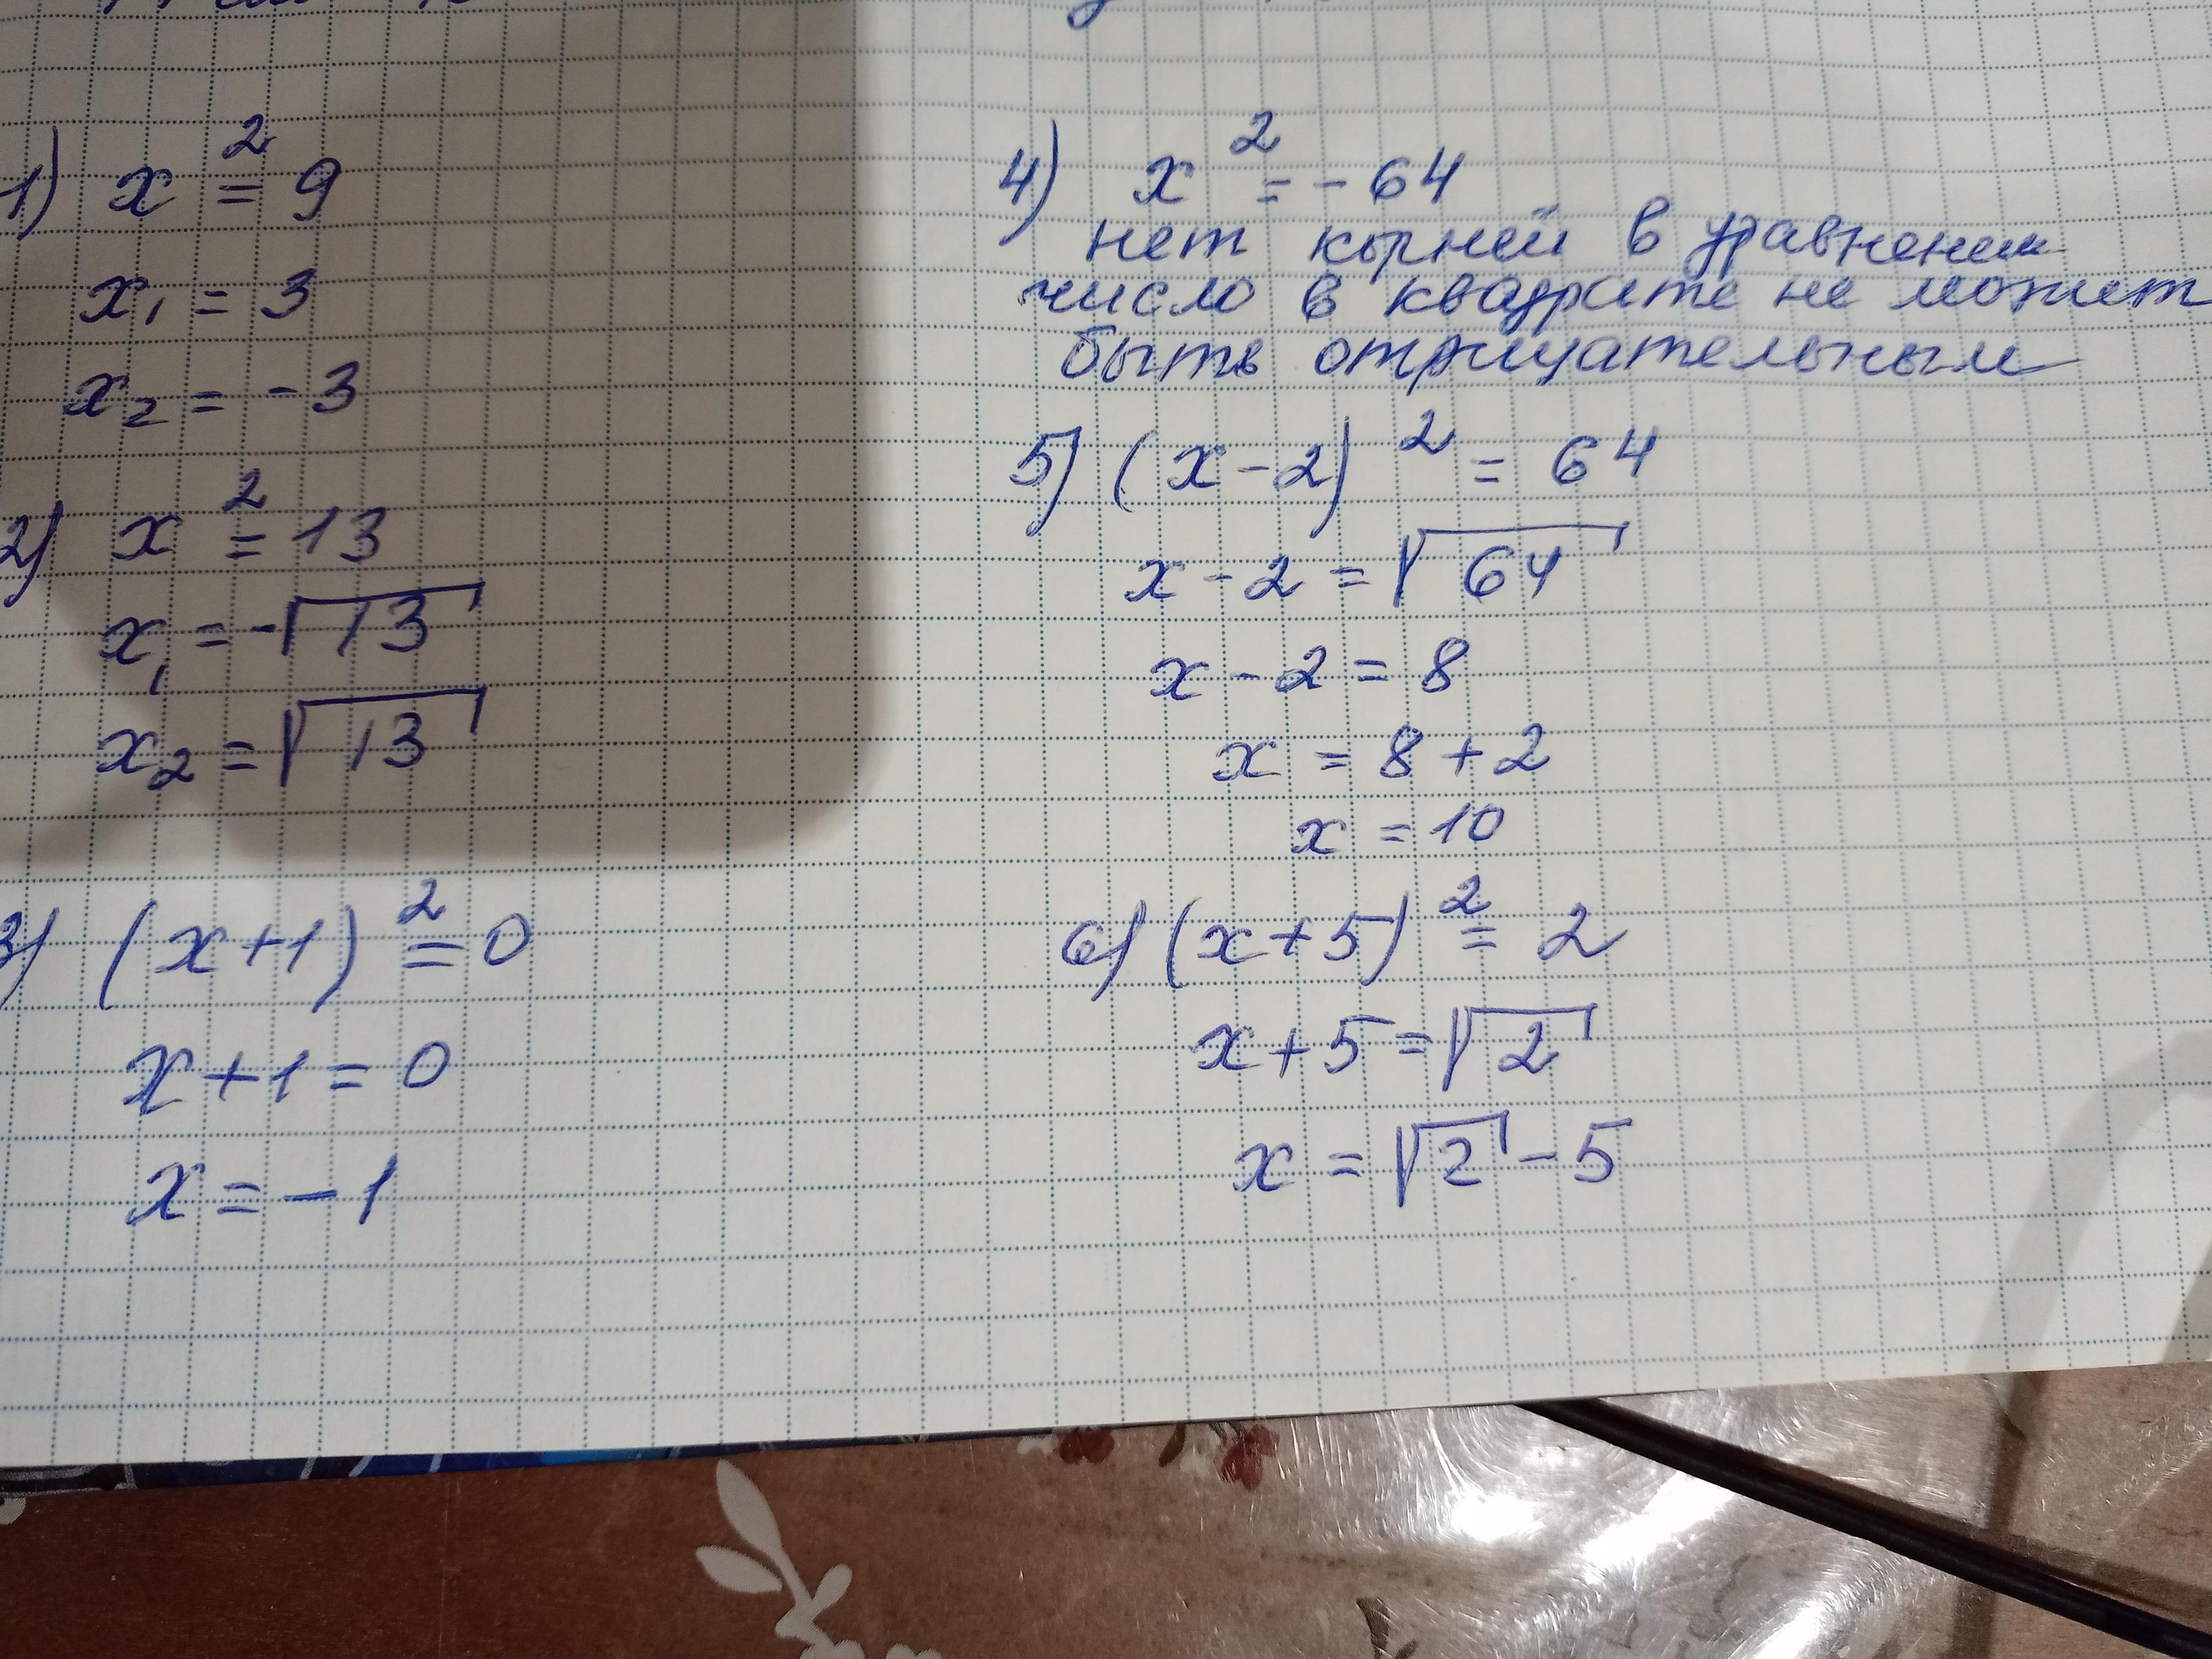 1) x² = 9
x₁ = 3
x₂ = -3
2) x² = 13
x₁ = -√13
x₂ = √13
3) (x+1)² = 0
x+1 = 0
x = -1
4) x² = -64
нет кырней в уравнении
число в квадрате не может
быть отрицательным
5) (x-2)² = 64
x-2 = √64
x-2 = 8
x = 8+2
x = 10
6) (x+5)² = 2
x+5 = √2
x = √2 - 5